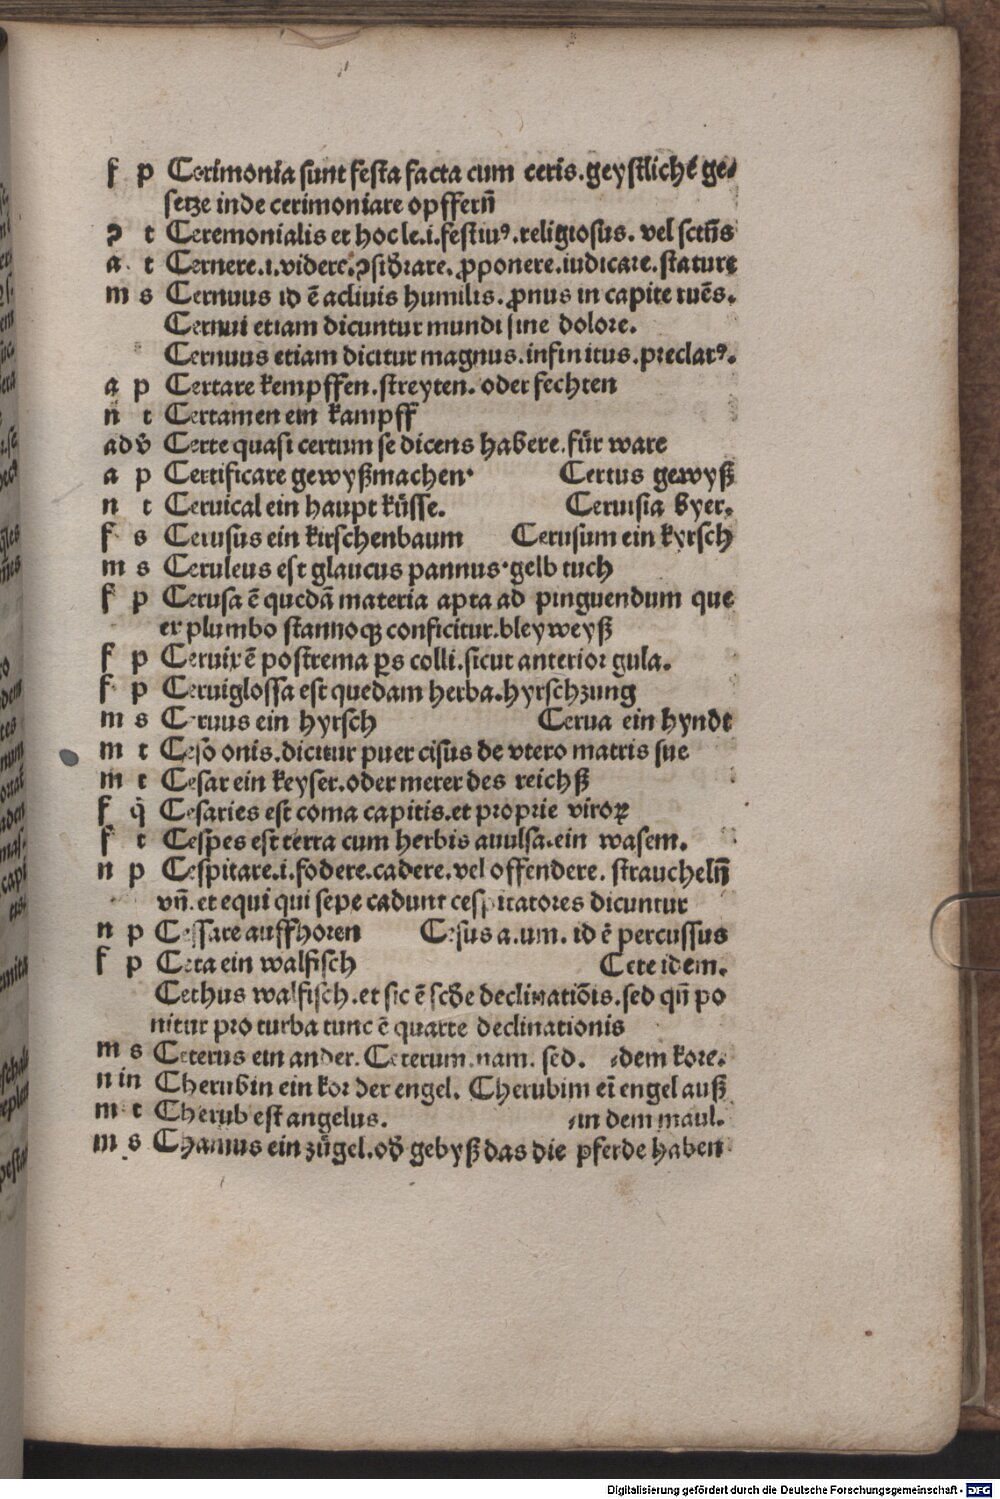 f p Cerimonia sunt festa facta cum ceris.geystliche ge⸗
setze inde cerimoniare opffern̄
ꝯ t Ceremonialis et hoc le.i.festiuꝰ.religiosus. vel sctūs
a t Cernere.i.videre.ꝯsiđrare.ꝓponere.iudicare.stature
m s Cernuus id ē acliuis humilis.ꝓnus in capite tuēs.
Cernui etiam dicuntur mundi sine dolore.
Cernuus etiam dicitur magnus.infinitus.preclarꝰ.
a p Certare kempffen.streyten. oder fechten
n t Certamen ein kampff
adv̄ Certe quasi certum se dicens habere.für ware
a p Certificare gewyßmachen. Certus gewyß
n t Ceruical ein haupt küsse. Ceruisia byer.
f s Cerusus ein kirschenbaum Cerusum ein kyrsch
m s Ceruleus est glaucus pannus.gelb tuch
f p Cerusa ē quedā materia apta ad pinguendum que
ex plumbo stannoqꝫ conficitur.bleyweyß
f p Ceruix ē postrema ꝑs colli.sicut anterior gula.
f p Ceruiglossa est quedam herba.hyrschzung
m s Ceruus ein hyrsch Cerua ein hyndt
m t Ceso onis.dicitur puer cisus de vtero matris sue
m t Cesar ein keyser.oder merer des reichß
f q̄ Cesaries est coma capitis.et proprie viroꝝ
f t Cespes est terra cum herbis auulsa.ein wasem.
n p Cespitare.i.fodere.cadere.vel offendere. straucheln̄
vn̄.et equi qui sepe cadunt cespitatores dicuntur
n p Cessare auffhoren Cesus a.um. id ē percussus
f p Ceta ein walfisch Cete idem.
Cethus walfisch.et sic ē scđe declinatiōis.sed qn̄ po
nitur pro turba tunc ē quarte declinationis
m s Ceterus ein ander. Ceterum.nam. sed. ⸗dem kore.
n in Cherubin ein kor der engel. Cherubim eī engel auß
m t Cherub est angelus. ⸗in dem maul.
m s Chamus ein zügel.ođ gebyß das die pferde haben
Digitalisierung gefördert durch die Deutsche Forschungsgemeinschaft - DFG